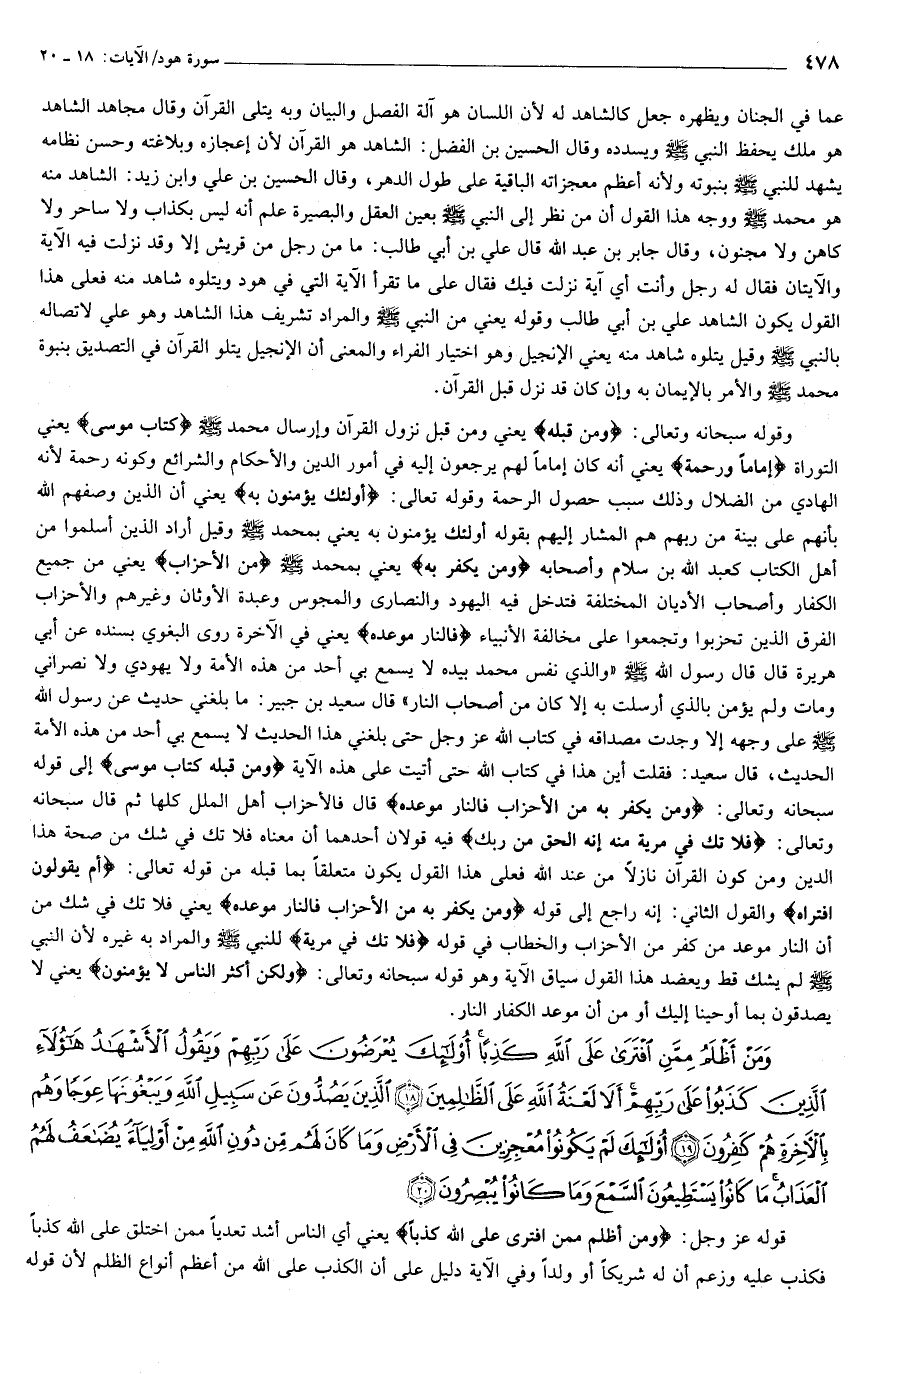 ٤٧٨ سورة هود/ الآيات: ١٨ ـ ٢٠
عما في الجنان ويظهره جعل كالشاهد له لأن اللسان هو آلة الفصل والبيان وبه يتلى القرآن وقال مجاهد الشاهد
هو ملك يحفظ النبي ﷺ ويسدده وقال الحسين بن الفضل: الشاهد هو القرآن لأن إعجازه وبلاغته وحسن نظامه
يشهد للنبي ﷺ بنبوته ولأنه أعظم معجزاته الباقية على طول الدهر، وقال الحسين بن علي وابن زيد: الشاهد منه
هو محمد ﷺ ووجه هذا القول أن من نظر إلى النبي ﷺ بعين العقل والبصيرة علم أنه ليس بكذاب ولا ساحر ولا
كاهن ولا مجنون، وقال جابر بن عبد الله قال علي بن أبي طالب: ما من رجل من قريش إلا وقد نزلت فيه الآية
والآيتان فقال له رجل وأنت أي آية نزلت فيك فقال على ما تقرأ الآية التي في هود ويتلوه شاهد منه فعلى هذا
القول يكون الشاهد علي بن أبي طالب وقوله يعني من النبي ﷺ والمراد تشريف هذا الشاهد وهو علي لاتصاله
بالنبي ﷺ وقيل يتلوه شاهد منه يعني الإنجيل وهو اختيار الفراء والمعنى أن الإنجيل يتلو القرآن في التصديق بنبوة
محمد ﷺ والأمر بالإيمان به وإن كان قد نزل قبل القرآن.
وقوله سبحانه وتعالى: ﴿ومن قبله﴾ يعني ومن قبل نزول القرآن وإرسال محمد ﷺ ﴿كتاب موسى﴾ يعني
التوراة ﴿إماماً ورحمة﴾ يعني أنه كان إماماً لهم يرجعون إليه في أمور الدين والأحكام والشرائع وكونه رحمة لأنه
الهادي من الضلال وذلك سبب حصول الرحمة وقوله تعالى: ﴿أولئك يؤمنون به﴾ يعني أن الذين وصفهم الله
بأنهم على بينة من ربهم هم المشار إليهم بقوله أولئك يؤمنون به يعني بمحمد ﷺ وقيل أراد الذين أسلموا من
أهل الكتاب كعبد الله بن سلام وأصحابه ﴿ومن يكفر به﴾ يعني بمحمد ﷺ ﴿من الأحزاب﴾ يعني من جميع
الكفار وأصحاب الأديان المختلفة فتدخل فيه اليهود والنصارى والمجوس وعبدة الأوثان وغيرهم والأحزاب
الفرق الذين تحزبوا وتجمعوا على مخالفة الأنبياء ﴿فالنار موعده﴾ يعني في الآخرة روى البغوي بسنده عن أبي
هريرة قال قال رسول الله ﷺ «والذي نفس محمد بيده لا يسمع بي أحد من هذه الأمة ولا يهودي ولا نصراني
ومات ولم يؤمن بالذي أرسلت به إلا كان من أصحاب النار» قال سعيد بن جبير: ما بلغني حديث عن رسول الله
ﷺ على وجهه إلا وجدت مصداقه في كتاب الله عز وجل حتى بلغني هذا الحديث لا يسمع بي أحد من هذه الأمة
الحديث، قال سعيد: فقلت أين هذا في كتاب الله حتى أتيت على هذه الآية ﴿ومن قبله كتاب موسى﴾ إلى قوله
سبحانه وتعالى: ﴿ومن يكفر به من الأحزاب فالنار موعده﴾ قال فالأحزاب أهل الملل كلها ثم قال سبحانه
وتعالى: ﴿فلا تك في مرية منه إنه الحق من ربك﴾ فيه قولان أحدهما أن معناه فلا تك في شك من صحة هذا
الدين ومن كون القرآن نازلاً من عند الله فعلى هذا القول يكون متعلقاً بما قبله من قوله تعالى: ﴿أم يقولون
افتراه﴾ والقول الثاني: إنه راجع إلى قوله ﴿ومن يكفر به من الأحزاب فالنار موعده﴾ يعني فلا تك في شك من
أن النار موعد من كفر من الأحزاب والخطاب في قوله ﴿فلا تك في مرية﴾ للنبي ﷺ والمراد به غيره لأن النبي
ﷺ لم يشك قط ويعضد هذا القول سياق الآية وهو قوله سبحانه وتعالى: ﴿ولكن أكثر الناس لا يؤمنون﴾ يعني لا
يصدقون بما أوحينا إليك أو من أن موعد الكفار النار.
وَمَنْ أَظْلَمُ مِمَّنِ ٱفْتَرَىٰ عَلَى ٱللَّهِ كَذِبًا ۚ أُو۟لَٰٓئِكَ يُعْرَضُونَ عَلَىٰ رَبِّهِمْ وَيَقُولُ ٱلْأَشْهَٰدُ هَٰٓؤُلَآءِ
ٱلَّذِينَ كَذَبُوا۟ عَلَىٰ رَبِّهِمْ ۚ أَلَا لَعْنَةُ ٱللَّهِ عَلَى ٱلظَّٰلِمِينَ ۝١٨ ٱلَّذِينَ يَصُدُّونَ عَن سَبِيلِ ٱللَّهِ وَيَبْغُونَهَا عِوَجًا وَهُم
بِٱلْآخِرَةِ هُمْ كَٰفِرُونَ ۝١٩ أُو۟لَٰٓئِكَ لَمْ يَكُونُوا۟ مُعْجِزِينَ فِى ٱلْأَرْضِ وَمَا كَانَ لَهُم مِّن دُونِ ٱللَّهِ مِنْ أَوْلِيَآءَ ۘ يُضَٰعَفُ لَهُمُ
ٱلْعَذَابُ ۚ مَا كَانُوا۟ يَسْتَطِيعُونَ ٱلسَّمْعَ وَمَا كَانُوا۟ يُبْصِرُونَ ۝٢٠
قوله عز وجل: ﴿ومن أظلم ممن افترى على الله كذباً﴾ يعني أي الناس أشد تعدياً ممن اختلق على الله كذباً
فكذب عليه وزعم أن له شريكاً أو ولداً وفي الآية دليل على أن الكذب على الله من أعظم أنواع الظلم لأن قوله